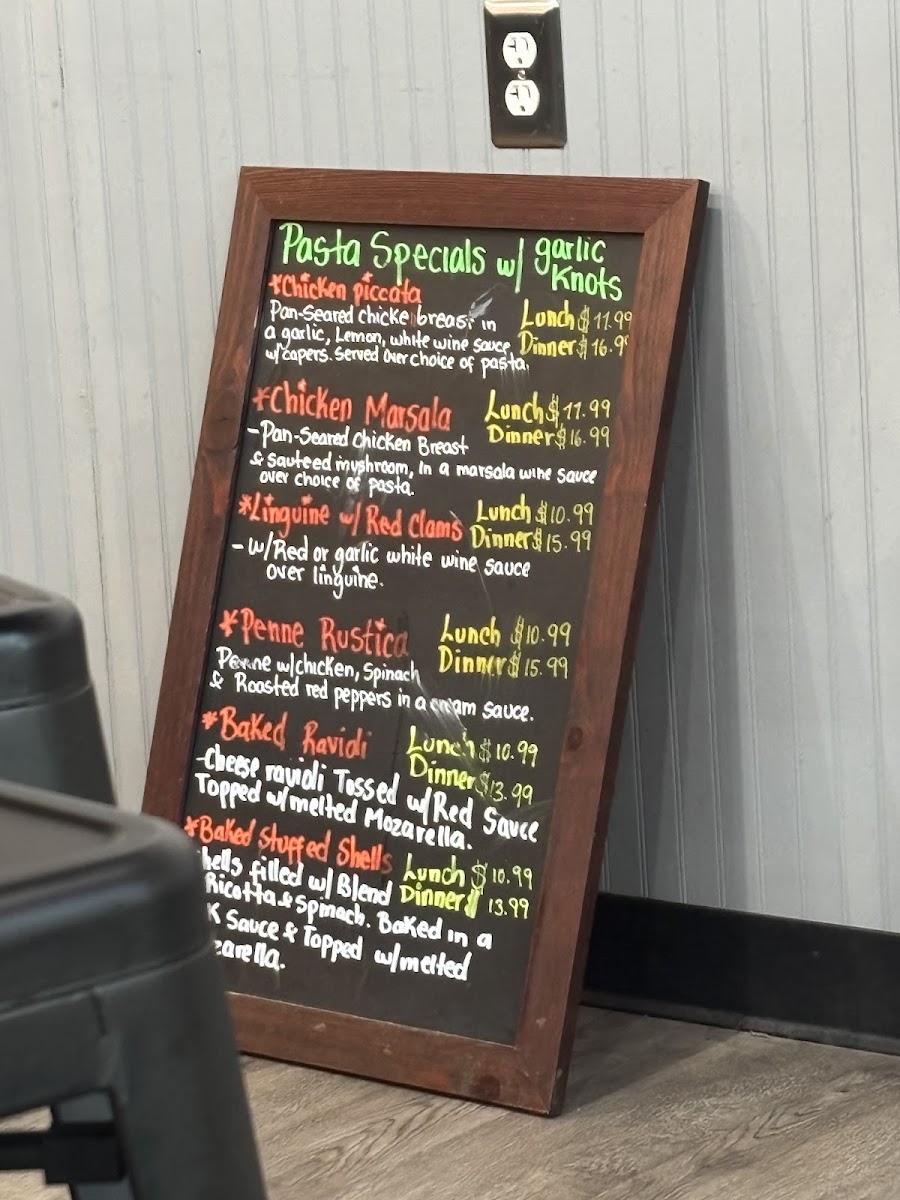 Pasta Specials w/ garlic Knots
*Chicken piccata
Pan-Seared chicke breast in
a garlic, Lemon, white wine sauce
w/capers. Served over choice of pasta.
Lunch $11.99
Dinner $16.9
*Chicken Marsala
Lunch $11.99
Dinner $16.99
-Pan-Seared Chicken Breast
& Sauteed myshroom, in a marsala wine sauce
over choice of pasta.
*Linguine w/ Red Clams
Lunch $10.99
Dinner $15.99
- w/Red or garlic white wine sauce
over linguine.
*Penne Rustica
Lunch $10.99
Dinner $15.99
Penne w/chicken, Spinach
& Roasted red peppers in a cream sauce.
*Baked Ravioli
Lunch $10.99
Dinner $13.99
-Cheese ravioli Tossed w/Red Sauce
Topped w/melted Mozarella.
*Baked Stuffed Shells
Lunch $10.99
Dinner $13.99
hells filled w/ Blend
Ricotta & Spinach. Baked in a
K Sauce & Topped w/melted
zarella.